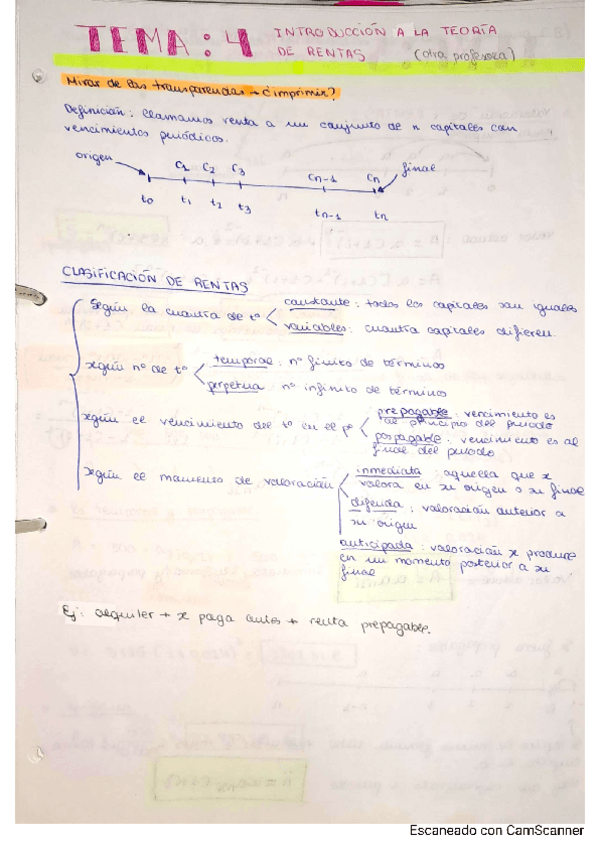 TEMA: 4 INTRODUCCIÓN A LA TEORÍA
DE RENTAS (otra profesora)
Mirar de las transparencias → ¿imprimir?
Definición: llamamos renta a un conjunto de n capitales con
vencimientos periódicos.
origen C1 C2 C3 Cn-1 Cn final
t0 t1 t2 t3 tn-1 tn
CLASIFICACIÓN DE RENTAS
Según la cuantía de tº
constante: todos los capitales son iguales
variables: cuantía capitales difieren.
según nº de tº
temporal: nº finito de términos
perpetua nº infinito de términos
según el vencimiento del tº en el pº
prepagable: vencimiento es
al principio del periodo
pospagable: vencimiento es al
final del periodo
según el momento de valoración
inmediata: aquella que se
valora en su origen o su final
diferida: valoración anterior a
su origen
anticipada: valoración se produce
en un momento posterior a su
final
Ej: alquiler + se paga antes + renta prepagable.
Escaneado con CamScanner